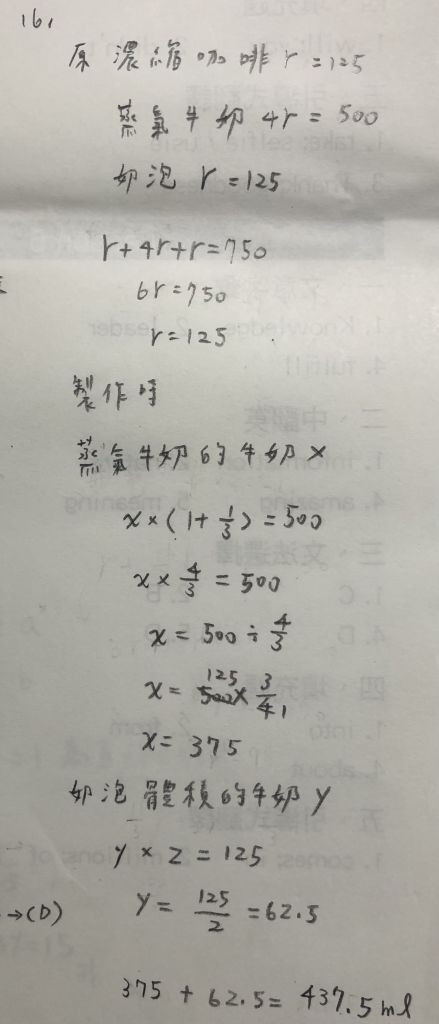 16,
原濃縮咖啡 r = 125
蒸氣牛奶 4r = 500
奶泡 r = 125
r + 4r + r = 750
6r = 750
r = 125
製作時
蒸氣牛奶的牛奶 x
x × (1 + 1/3) = 500
x × 4/3 = 500
x = 500 ÷ 4/3
x = 500 125 × 3/4 1
x = 375
奶泡體積的牛奶 y
y × 2 = 125
→(D) y = 125/2 = 62.5
375 + 62.5 = 437.5 ml